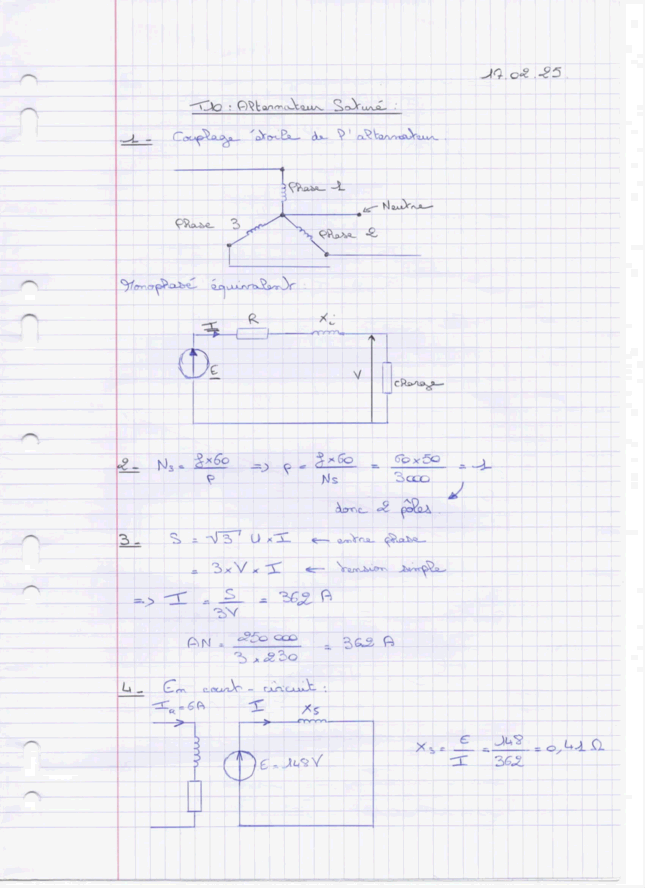 17.02.25
TD : Alternateur Saturé :
1 - Couplage étoile de l'alternateur
Phase 1
Neutre
Phase 3
Phase 2
Monophasé équivalent
I R Xi
E V charge
2 - Ns = f×60/p => p = f×60/Ns = 60×50/3000 = 1
donc 2 pôles
3 - S = √3 U×I ← entre phase
= 3×V×I ← tension simple
=> I = S/3V = 362 A
AN = 250 000/3×230 = 362 A
4 - En court-circuit :
Ia = 6A I Xs
E = 148V
Xs = E/I = 148/362 = 0,41 Ω